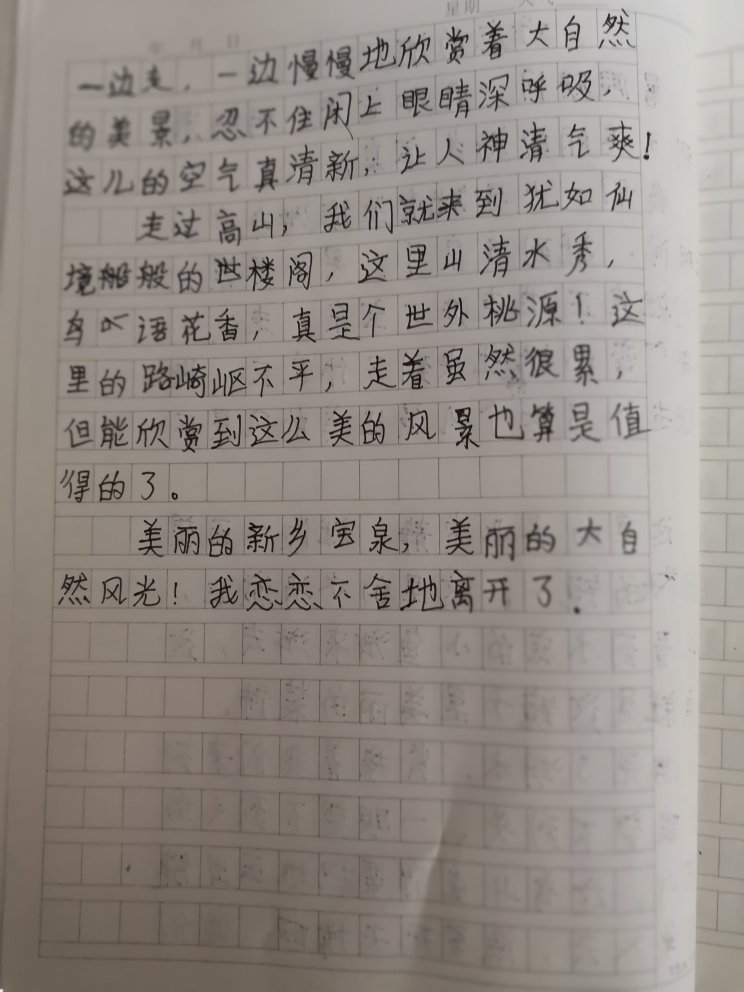 星期
年 月 日
一边走，一边慢慢地欣赏着大自然
的美景，忍不住闭上眼睛深呼吸，
这儿的空气真清新，让人神清气爽！
走过高山，我们就来到犹如仙
境船般的世楼阁，这里山清水秀，
鸟语花香，真是个世外桃源！这
里的路崎岖不平，走着虽然很累，
但能欣赏到这么美的风景也算是值
得的了。
美丽的新乡宝泉，美丽的大自
然风光！我恋恋不舍地离开了.